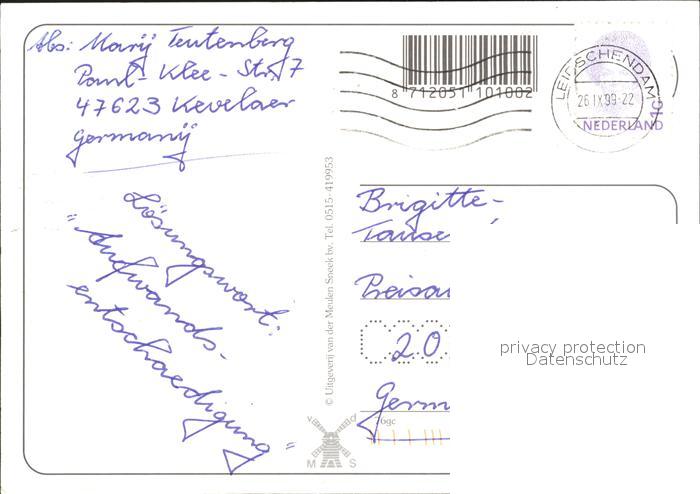 Abs: Marij Teutenberg
Paul-Klee-Str. 7
47623 Kevelaer
Germanij
8 712051 101002
LEIDSCHENDAM
26.IX.99-22
NEDERLAND
© Uitgeverij van der Meulen Sneek bv. Tel. 0515-419953
Lösungswort:
"Aufwands-
entschaedigung"
Brigitte-
Tause
Preisau
20
Germ
M S
privacy protection
Datenschutz